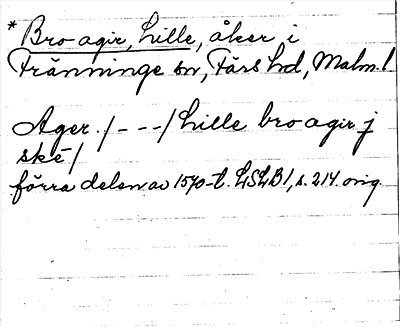 * Bro agir, Lille, åker i
Tränninge sn, Färs hd, Malm. l
Ager. / - - - / Lille bro agir j
ske /
förra delen av 1570-t. LSLB 1, s. 214. orig.